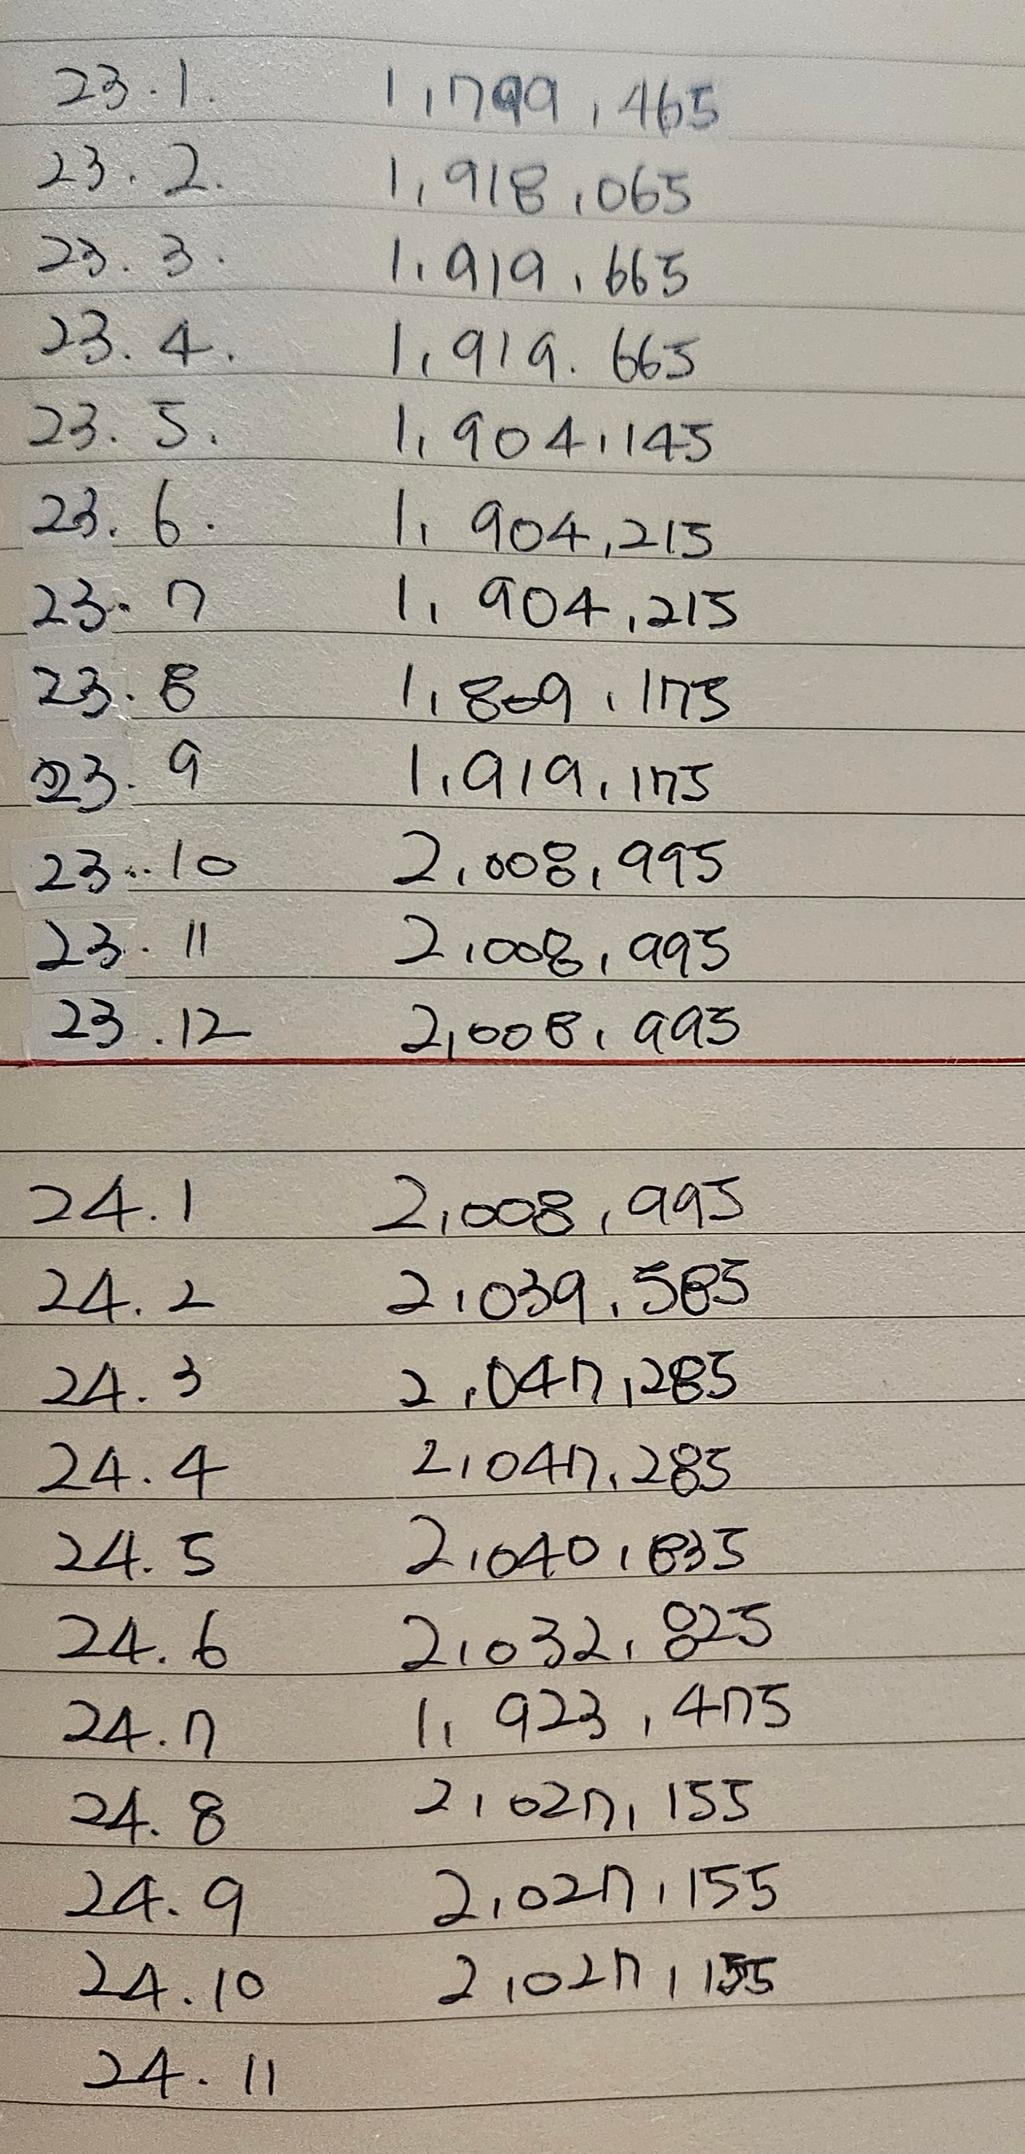 23.1. 1,799,465
23.2. 1,918,065
23.3. 1,919,665
23.4. 1,919.665
23.5. 1,904,145
23.6. 1,904,215
23.7 1,904,215
23.8 1,809,175
23.9 1,919,175
23..10 2,008,995
23.11 2,008,995
23.12 2,008,995
24.1 2,008,995
24.2 2,039,585
24.3 2,047,285
24.4 2,047,285
24.5 2,040,835
24.6 2,032,825
24.7 1,923,475
24.8 2,027,155
24.9 2,027,155
24.10 2,027,155
24.11